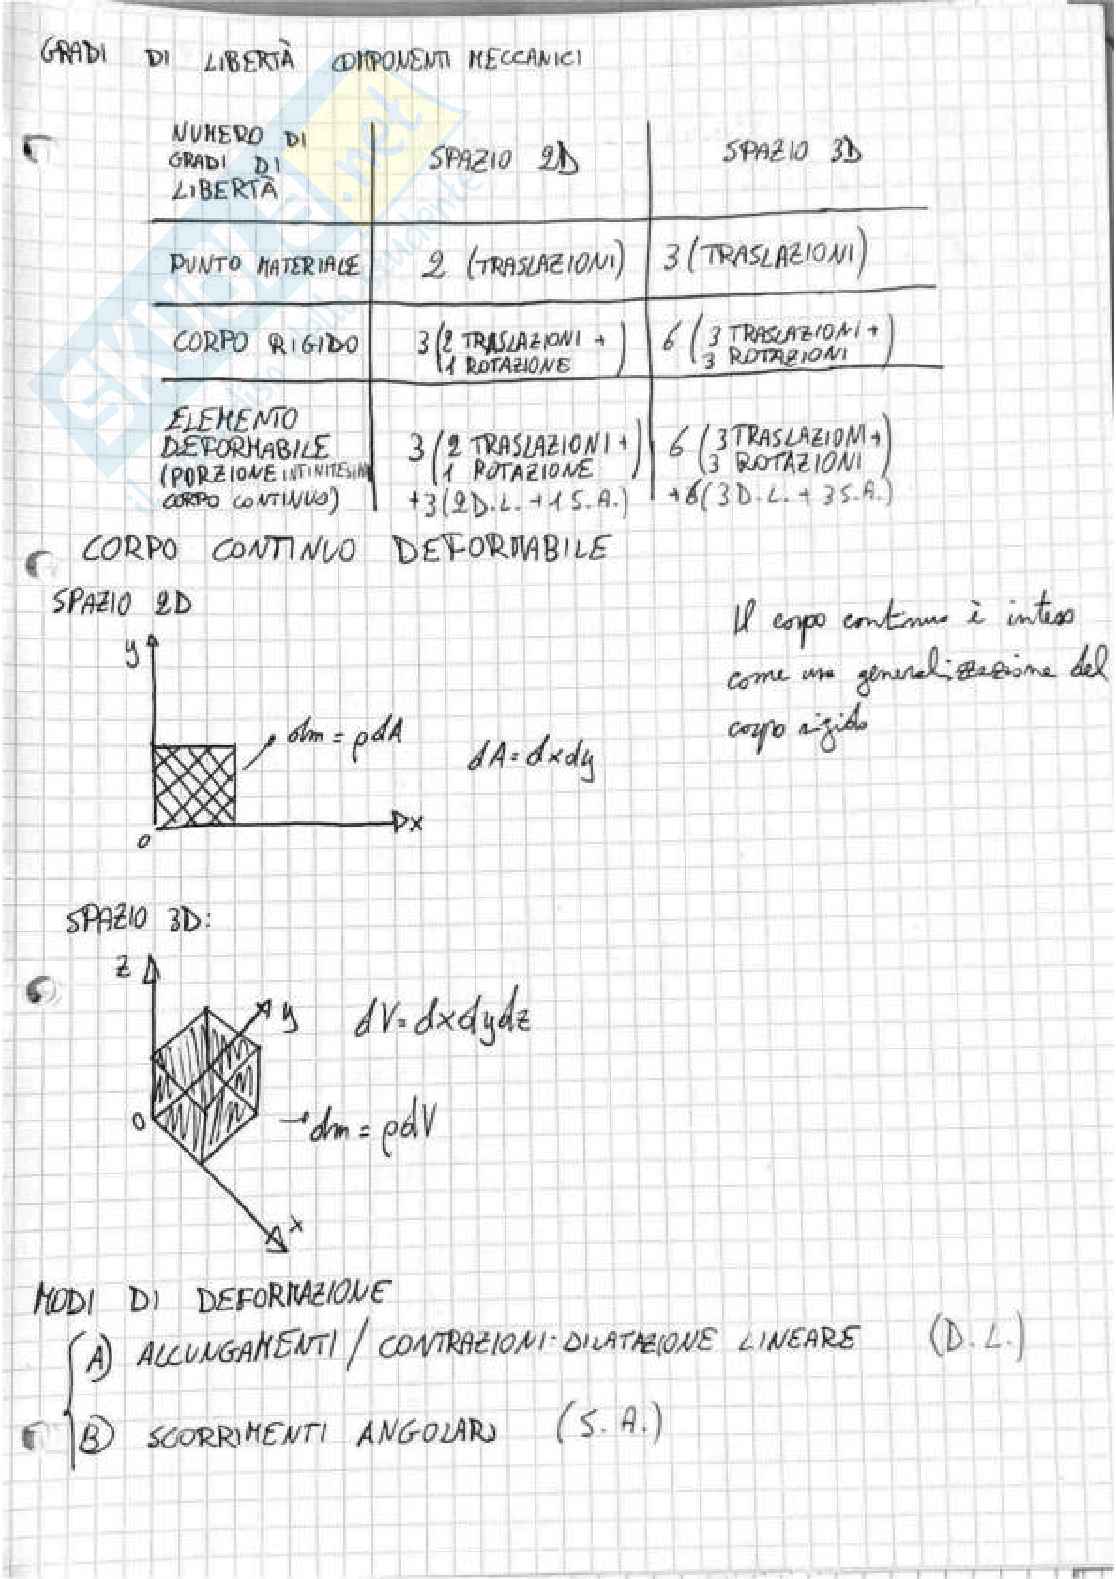 GRADI DI LIBERTÀ COMPONENTI MECCANICI
NUMERO DI
GRADI DI
LIBERTÀ
SPAZIO 2D
SPAZIO 3D
PUNTO MATERIALE
2 (TRASLAZIONI)
3 (TRASLAZIONI)
CORPO RIGIDO
3 (2 TRASLAZIONI +
1 ROTAZIONE)
6 (3 TRASLAZIONI +
3 ROTAZIONI)
ELEMENTO
DEFORMABILE
(PORZIONE INFINITESIMA
CORPO CONTINUO)
3 (2 TRASLAZIONI +
1 ROTAZIONE)
+3 (2 D.L. + 1 S.A.)
6 (3 TRASLAZIONI +
3 ROTAZIONI)
+6 (3 D.L. + 3 S.A.)
CORPO CONTINUO DEFORMABILE
SPAZIO 2D
y
dm = ρdA
dA = dxdy
x
0
Il corpo continuo è inteso
come una generalizzazione del
corpo rigido
SPAZIO 3D:
z
y
dV = dxdydz
0
dm = ρdV
x
MODI DI DEFORMAZIONE
A) ALLUNGAMENTI / CONTRAZIONI: DILATAZIONE LINEARE (D.L.)
B) SCORRIMENTI ANGOLARI (S.A.)
SKUOLA.net